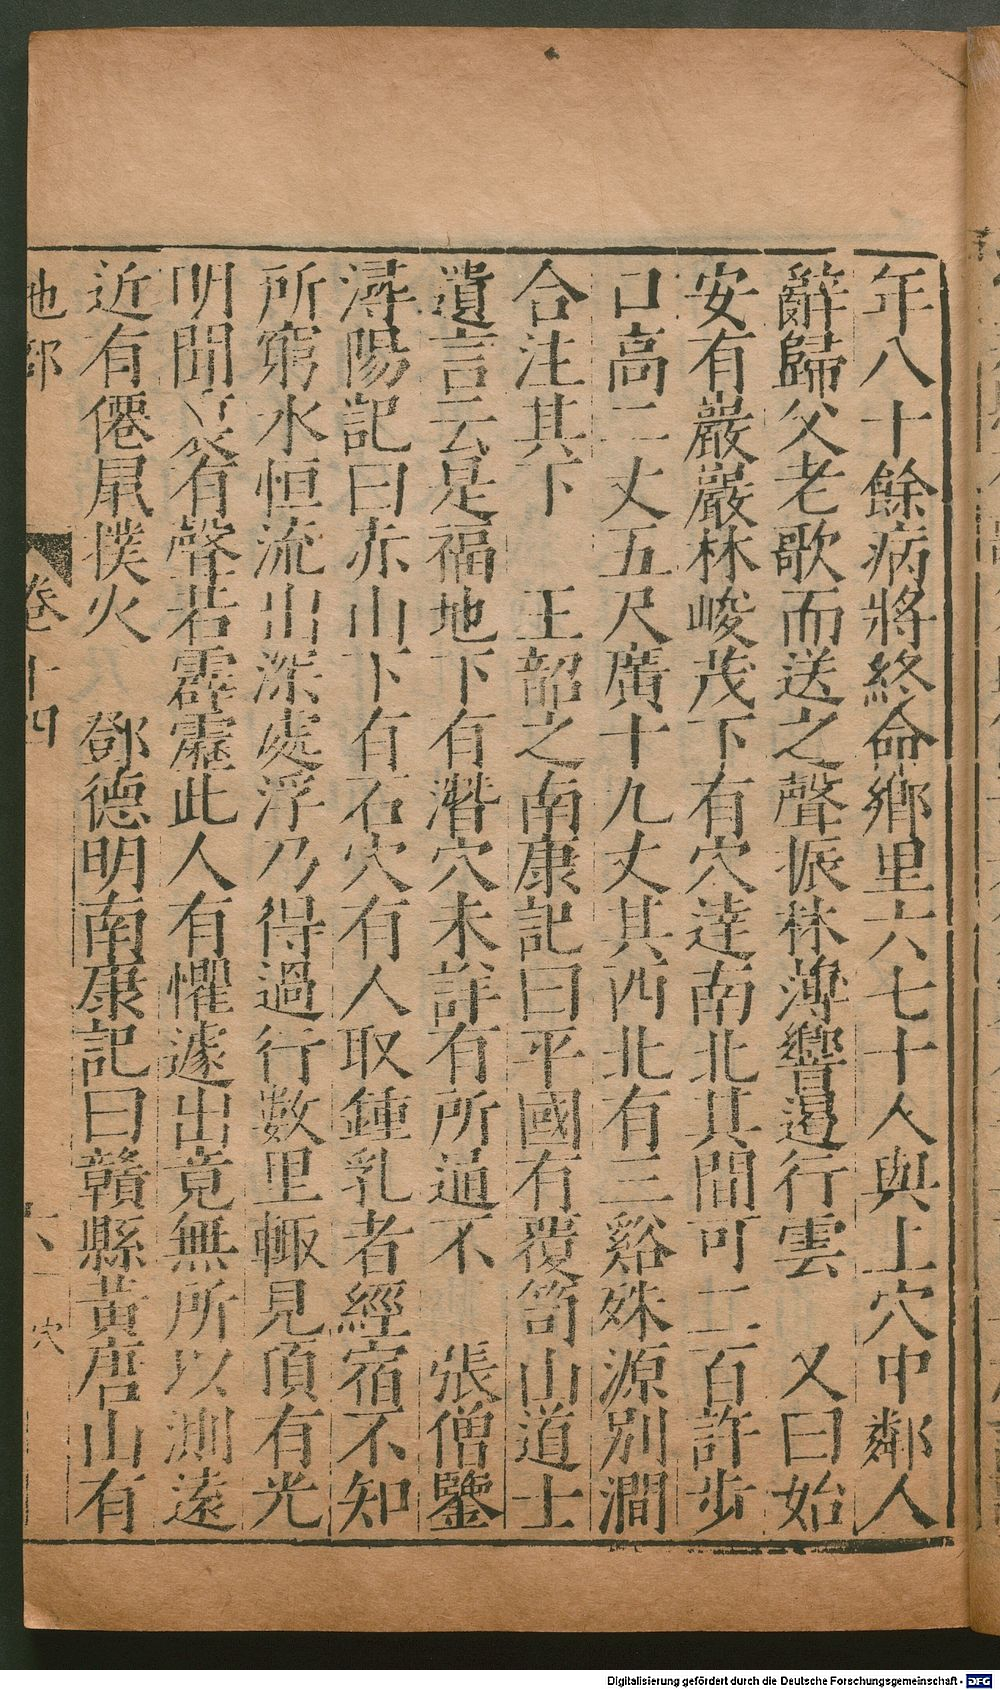 年八十餘病將終命鄉里六七十人與上穴中鄰人
辭歸父老歌而送之聲振林薄響遏行雲　又曰始
安有巖巖林峻茂下有穴達南北其間可二百許步
口高二丈五尺廣十九丈其西北有三谿殊源別澗
合注其下　王韶之南康記曰平國有覆笥山道士
遺言云是福地下有潛穴未詳有所通不　張僧鑒
潯陽記曰赤山下有石穴有人取鍾乳者經宿不知
所窮水恒流出深處浮乃得過行數里輒見頂有光
明聞有聲若霹靂此人有懼遽出竟無所以測遠
近有僊鼠撲火　鄧德明南康記曰贛縣黃唐山有
地部　卷十四　穴
Digitalisierung gefördert durch die Deutsche Forschungsgemeinschaft - DFG